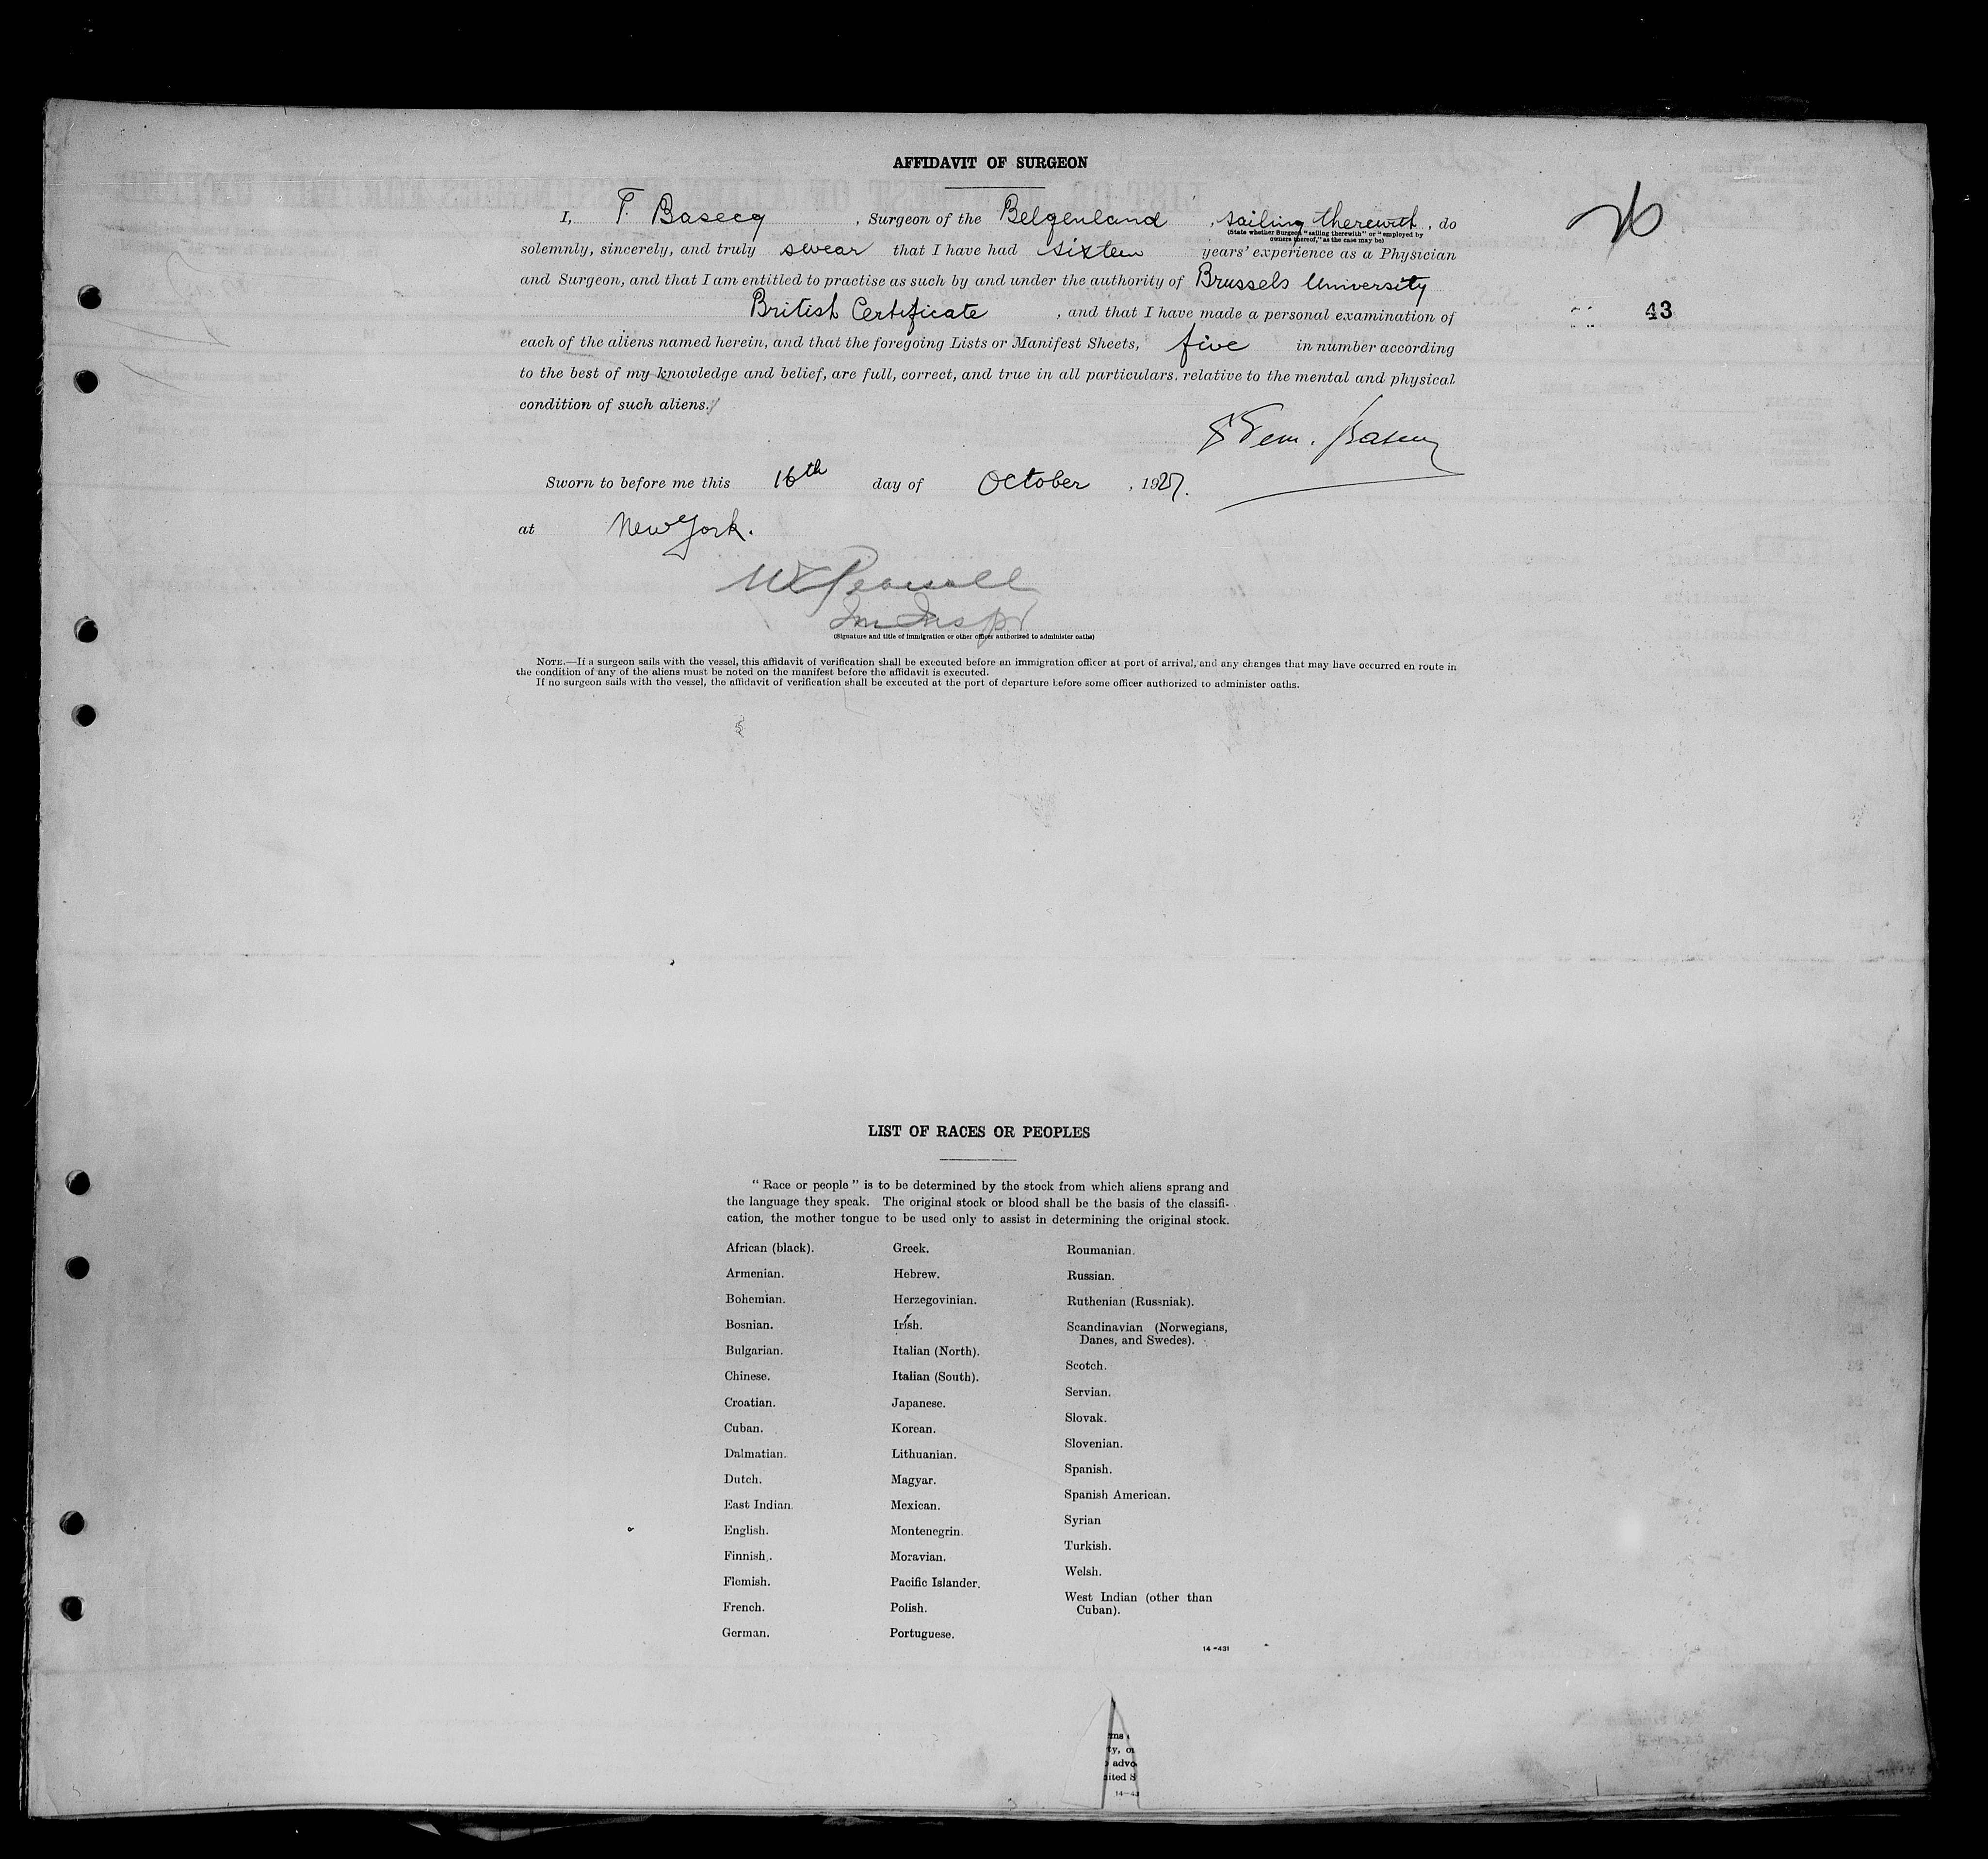 AFFIDAVIT OF SURGEON
I, T. Basecq , Surgeon of the Belgenland , sailing therewith , do
(State whether Surgeon "sailing therewith" or "employed by
owners thereof," as the case may be)
solemnly, sincerely, and truly swear that I have had sixteen years' experience as a Physician
and Surgeon, and that I am entitled to practise as such by and under the authority of Brussels University
British Certificate , and that I have made a personal examination of
43
each of the aliens named herein, and that the foregoing Lists or Manifest Sheets, five in number according
to the best of my knowledge and belief, are full, correct, and true in all particulars, relative to the mental and physical
condition of such aliens.
Sworn to before me this 16th day of October , 1927.
at New York.
(Signature and title of immigration or other officer authorized to administer oaths)
NOTE.—If a surgeon sails with the vessel, this affidavit of verification shall be executed before an immigration officer at port of arrival, and any changes that may have occurred en route in
the condition of any of the aliens must be noted on the manifest before the affidavit is executed.
If no surgeon sails with the vessel, the affidavit of verification shall be executed at the port of departure before some officer authorized to administer oaths.
LIST OF RACES OR PEOPLES
"Race or people" is to be determined by the stock from which aliens sprang and
the language they speak. The original stock or blood shall be the basis of the classifi-
cation, the mother tongue to be used only to assist in determining the original stock.
African (black).
Armenian.
Bohemian.
Bosnian.
Bulgarian.
Chinese.
Croatian.
Cuban.
Dalmatian.
Dutch.
East Indian.
English.
Finnish.
Flemish.
French.
German.
Greek.
Hebrew.
Herzegovinian.
Irish.
Italian (North).
Italian (South).
Japanese.
Korean.
Lithuanian.
Magyar.
Mexican.
Montenegrin.
Moravian.
Pacific Islander.
Polish.
Portuguese.
Roumanian.
Russian.
Ruthenian (Russniak).
Scandinavian (Norwegians,
Danes, and Swedes).
Scotch.
Servian.
Slovak.
Slovenian.
Spanish.
Spanish American.
Syrian
Turkish.
Welsh.
West Indian (other than
Cuban).
14-431